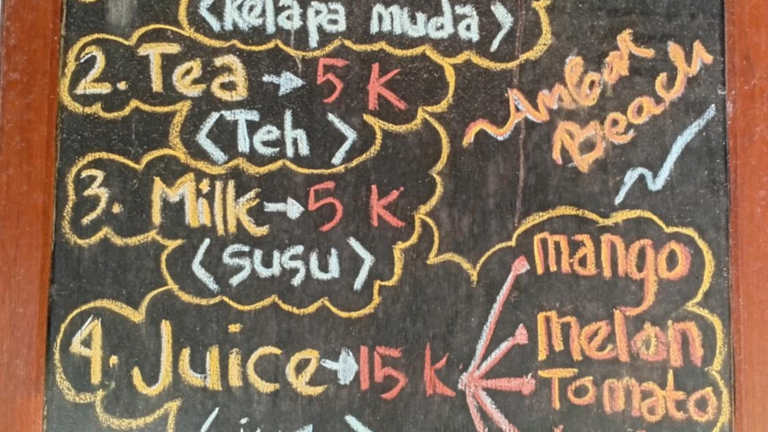 <Kelapa muda>
2. Tea → 5 K
<Teh>
Ambon
Beach
3. Milk → 5 K
<susu>
4. Juice → 15 K
mango
melon
Tomato